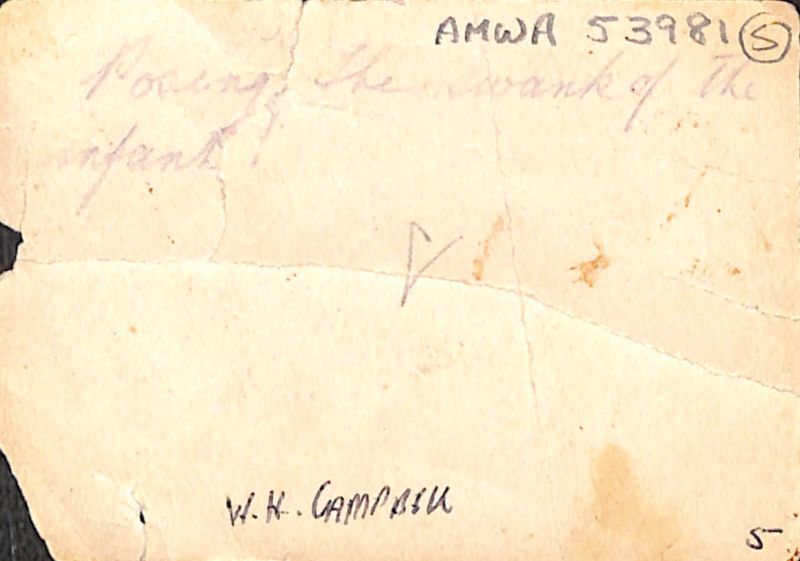 AMWA 53981 5
Posing, The swank of The
infant!
W.H. CAMPBELL
5